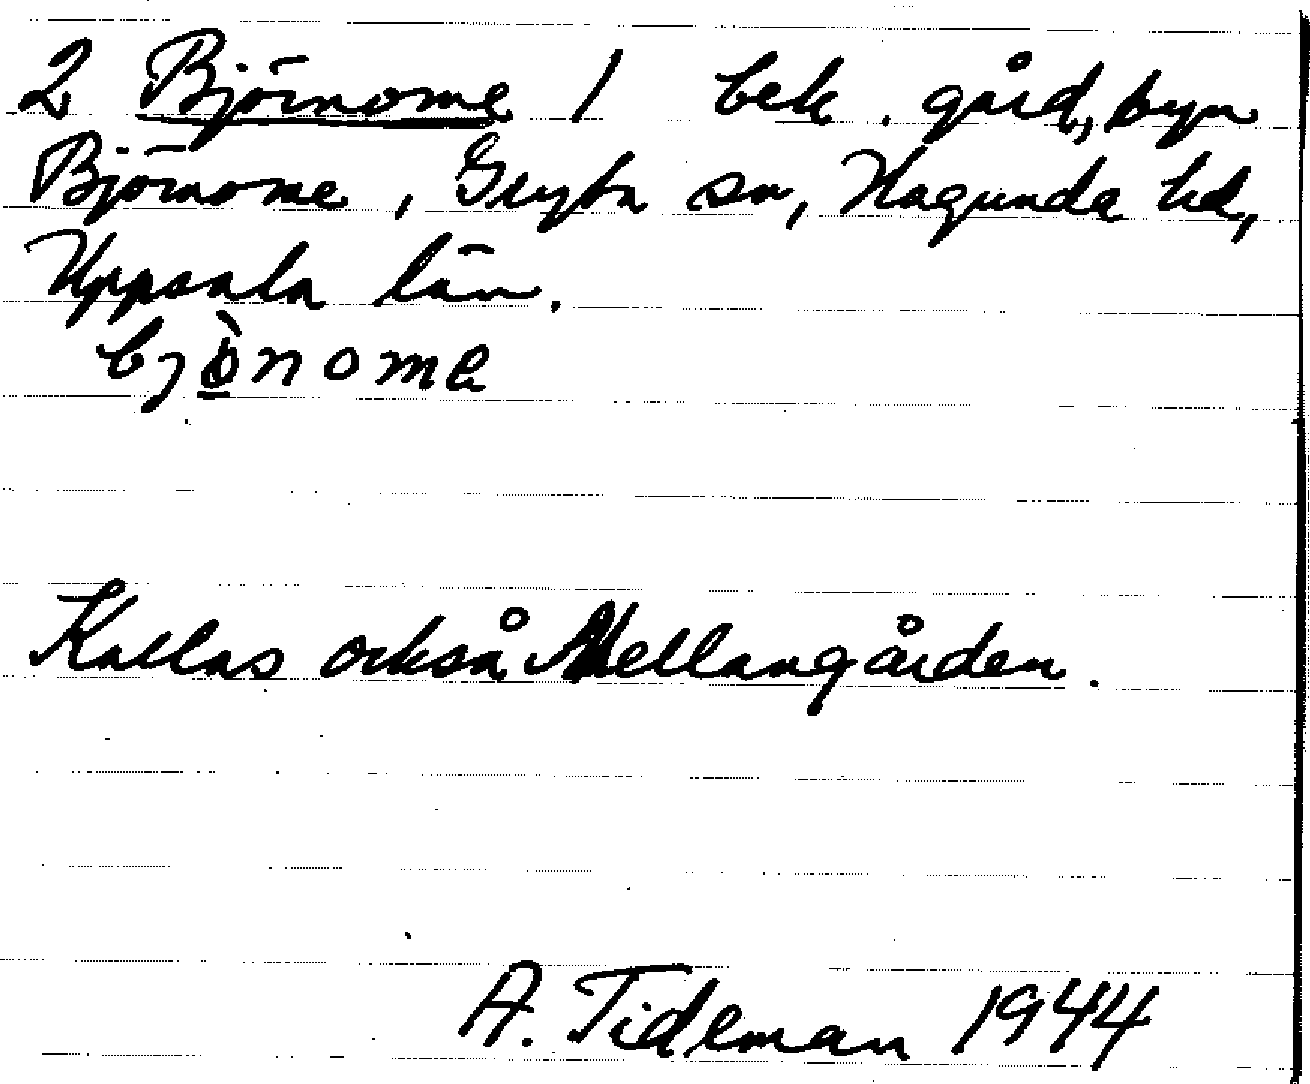 2 Björnome / bek. gård, byn
Björnome, Gryta sn, Hagunda hd,
Uppsala län.
bjö̀nome
Kallas också Mellangården.
A. Tideman 1944